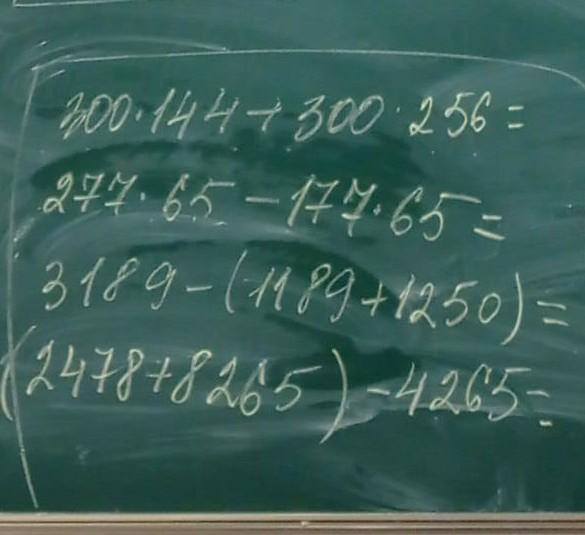 300·144+300·256=
277·65-177·65=
3189-(1189+1250)=
(2478+8265)-4265=